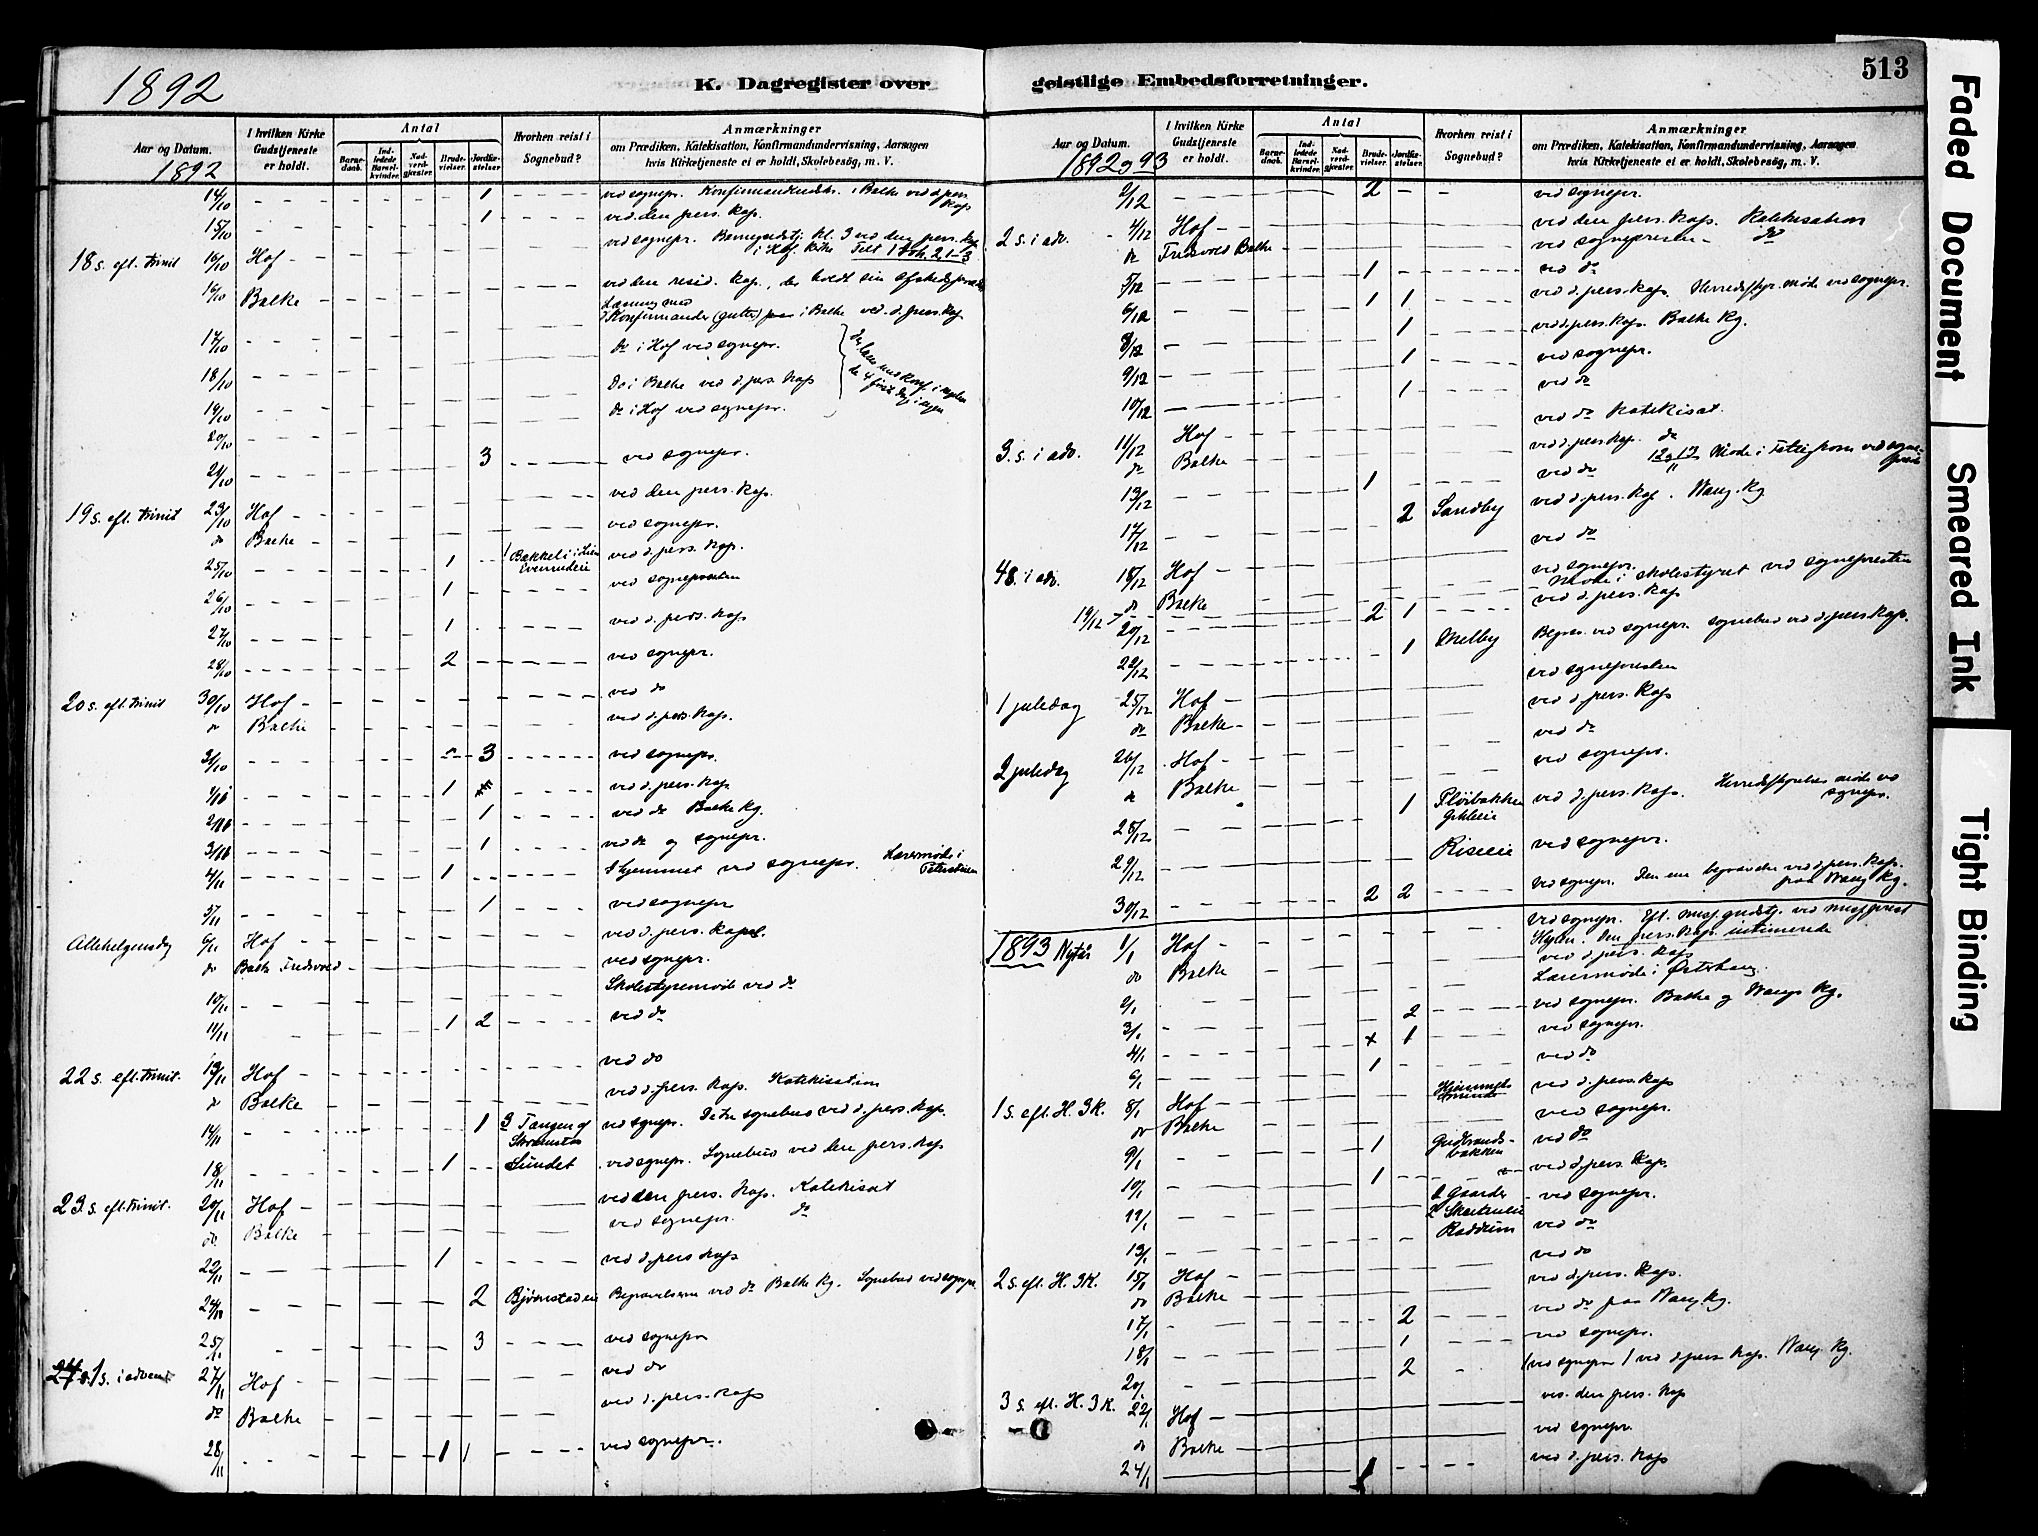 1892
K. Dagregister over
Aar og Datum.
1892
I hvilken Kirke Gudstjeneste er holdt.
Antal
Barnedaab.
Indledede Barselkvinder.
Nadverdgjester.
Brudevielser.
Jordfæstelser.
Hvorhen reist i Sognebud?
Anmærkninger
om Prædiken, Katekisation, Konfirmandundervisning, Aarsagen
hvis Kirketjeneste ei er holdt, Skolebesög, m. V.
14/10 1 ved sognepr. i Balke ved d. pers. Kap
15/10 1 ved den pers. Kap.
18 s. eft. trinit 16/10 Hof ved sognepr. Kl. 3 ved den pers. Kap
i Hof Kirke
16/10 Balke ved den resid. Kap., der holdt sin
Konfirmander (gutter) i Balke ved d. pers. Kap
17/10 do i Hof ved sognepr.
18/10 do i Balke ved d. pers. Kap
19/10 do i Hof ved sognepr.
20/10 3 ved sognepr.
21/10 ved den pers. Kap.
19 s. eft. trinit 23/10 Hof ved sognepr.
do Balke ved d. pers. Kap.
25/10 1 ved sognepresten
26/10 1 ved d. pers. Kap
27/10 1 ved sognepr.
28/10 2 ved do
20 s. eft. trinit 30/10 Hof
do Balke ved d. pers. Kap.
31/10 3 ved sognepr.
1 ved d. pers. Kap
1 ved do Balke Kg.
1 ved do og sognepr.
4/11 1 Hjemmet ved sognepr. Læremøde i
5/11 1 ved sognepr
Allehelgensdag 6/11 Hof ved d. pers. Kapel.
do Balke Fredsvold ved sognepr.
10/11 Skolestyremøde ved do
11/11 1 2 ved do
22 s. eft. trinit. 13/11 Hof ved do
do Balke ved d. pers. Kap. Katekisation
14/11 1 3 Tangen og ved sognepr. sognebud ved d. pers. Kap.
18/11 1 Sundet ved sognepr. Sognebud ved den pers. Kap
23 s. eft. trinit. 20/11 Hof ved den pers. Kap. Katekisat
do Balke ved sognepr. do
22/11 1 ved d. pers Kap
24/11 2 Begravelserne ved do Balke Kg. Sognebud ved sognepr
25/11 3 ved sognepr
1 s. i advent 27/11 Hof ved do
do Balke ved d. pers. Kap
28/11 1 1 ved sognepr.
geistlige Embedsforretninger.
513
Aar og Datum.
1892 og 93
I hvilken Kirke Gudstjeneste er holdt.
Antal
Barnedaab.
Indledede Barselkvinder.
Nadverdgjester.
Brudevielser.
Jordfæstelser.
Hvorhen reist i Sognebud?
Anmærkninger
om Prædiken, Katekisation, Konfirmandundervisning, Aarsagen
hvis Kirketjeneste ei er holdt, Skolebesög, m. V.
2/12 2 ved sognepr.
2 s. i adv. 4/12 Hof ved den pers. Kap. Katekisation
do Fredsvold Balke ved sognepresten do
5/12 1 ved do
6/12 1 1 ved d. pers. Kap. Herredsstyr. møde ved sognepr.
8/12 1 ved d. pers. Kap. Balke Kg.
9/12 1 ved sognepr.
10/12 1 ved do
3. s. i adv. 11/12 Hof ved do Katekisat.
do Balke ved d. pers Kap. do
13/12 1 ved do
17/12 2 Sandby ved d. pers. Kap. Wang. Kg
ved do
4 s. i adv. 18/12 Hof ved sognepr.
Møde i skolestyret ved sognepresten
do Balke ved d. pers. Kap
19/12 20/12 2 1
22/12 1 Melby Begrav. ved sognepr. sognebud ved d. pers. Kap.
ved sognepresten
1 juledag 25/12 Hof ved d. pers. Kap
do Balke ved do
2 juledag 26/12 Hof ved sognepr.
do Balke
28/12 1 ved d. pers. Kap. Herredsstyrelses møde ved sognepr.
29/12 Riseeie ved sognepr.
30/12 2 2 ved sognepr. Den ene begravelse ved d. pers. Kap. paa Wang Kg.
1893 Nytår 1/1 Hof ved sognepr. Eft.
do Balke ved d. pers. Kap
2/1 Læremøde i
3/1 2 ved sognepr. Balke og Wangs Kg.
4/1 x 1 ved sognepr.
6/1 1 ved do
1 s. eft. H. 3 K. 8/1 Hof ved d. pers. Kap
do Balke ved sognepr.
9/1 1 Gudbrandsbakken ved do
10/1 1 ved d. pers. Kap.
11/1 2 Gaarder ved sognepr.
13/1 ved do
ved do
2 s. eft. H. 3 K. 15/1 Hof ved d. pers. Kap.
do Balke
17/1 2 ved do paa Wang Kg.
18/1 1 ved sognepr.
20/1 2 1 ved sognepr 1 ved d. pers Kap. Wang Kg.
3 s. eft. H. 3 K. 22/1 Hof ved den pers. Kap
do Balke ved sognepr.
24/1 1 ved d. pers. Kap
Faded Document
Smeared Ink
Tight Binding